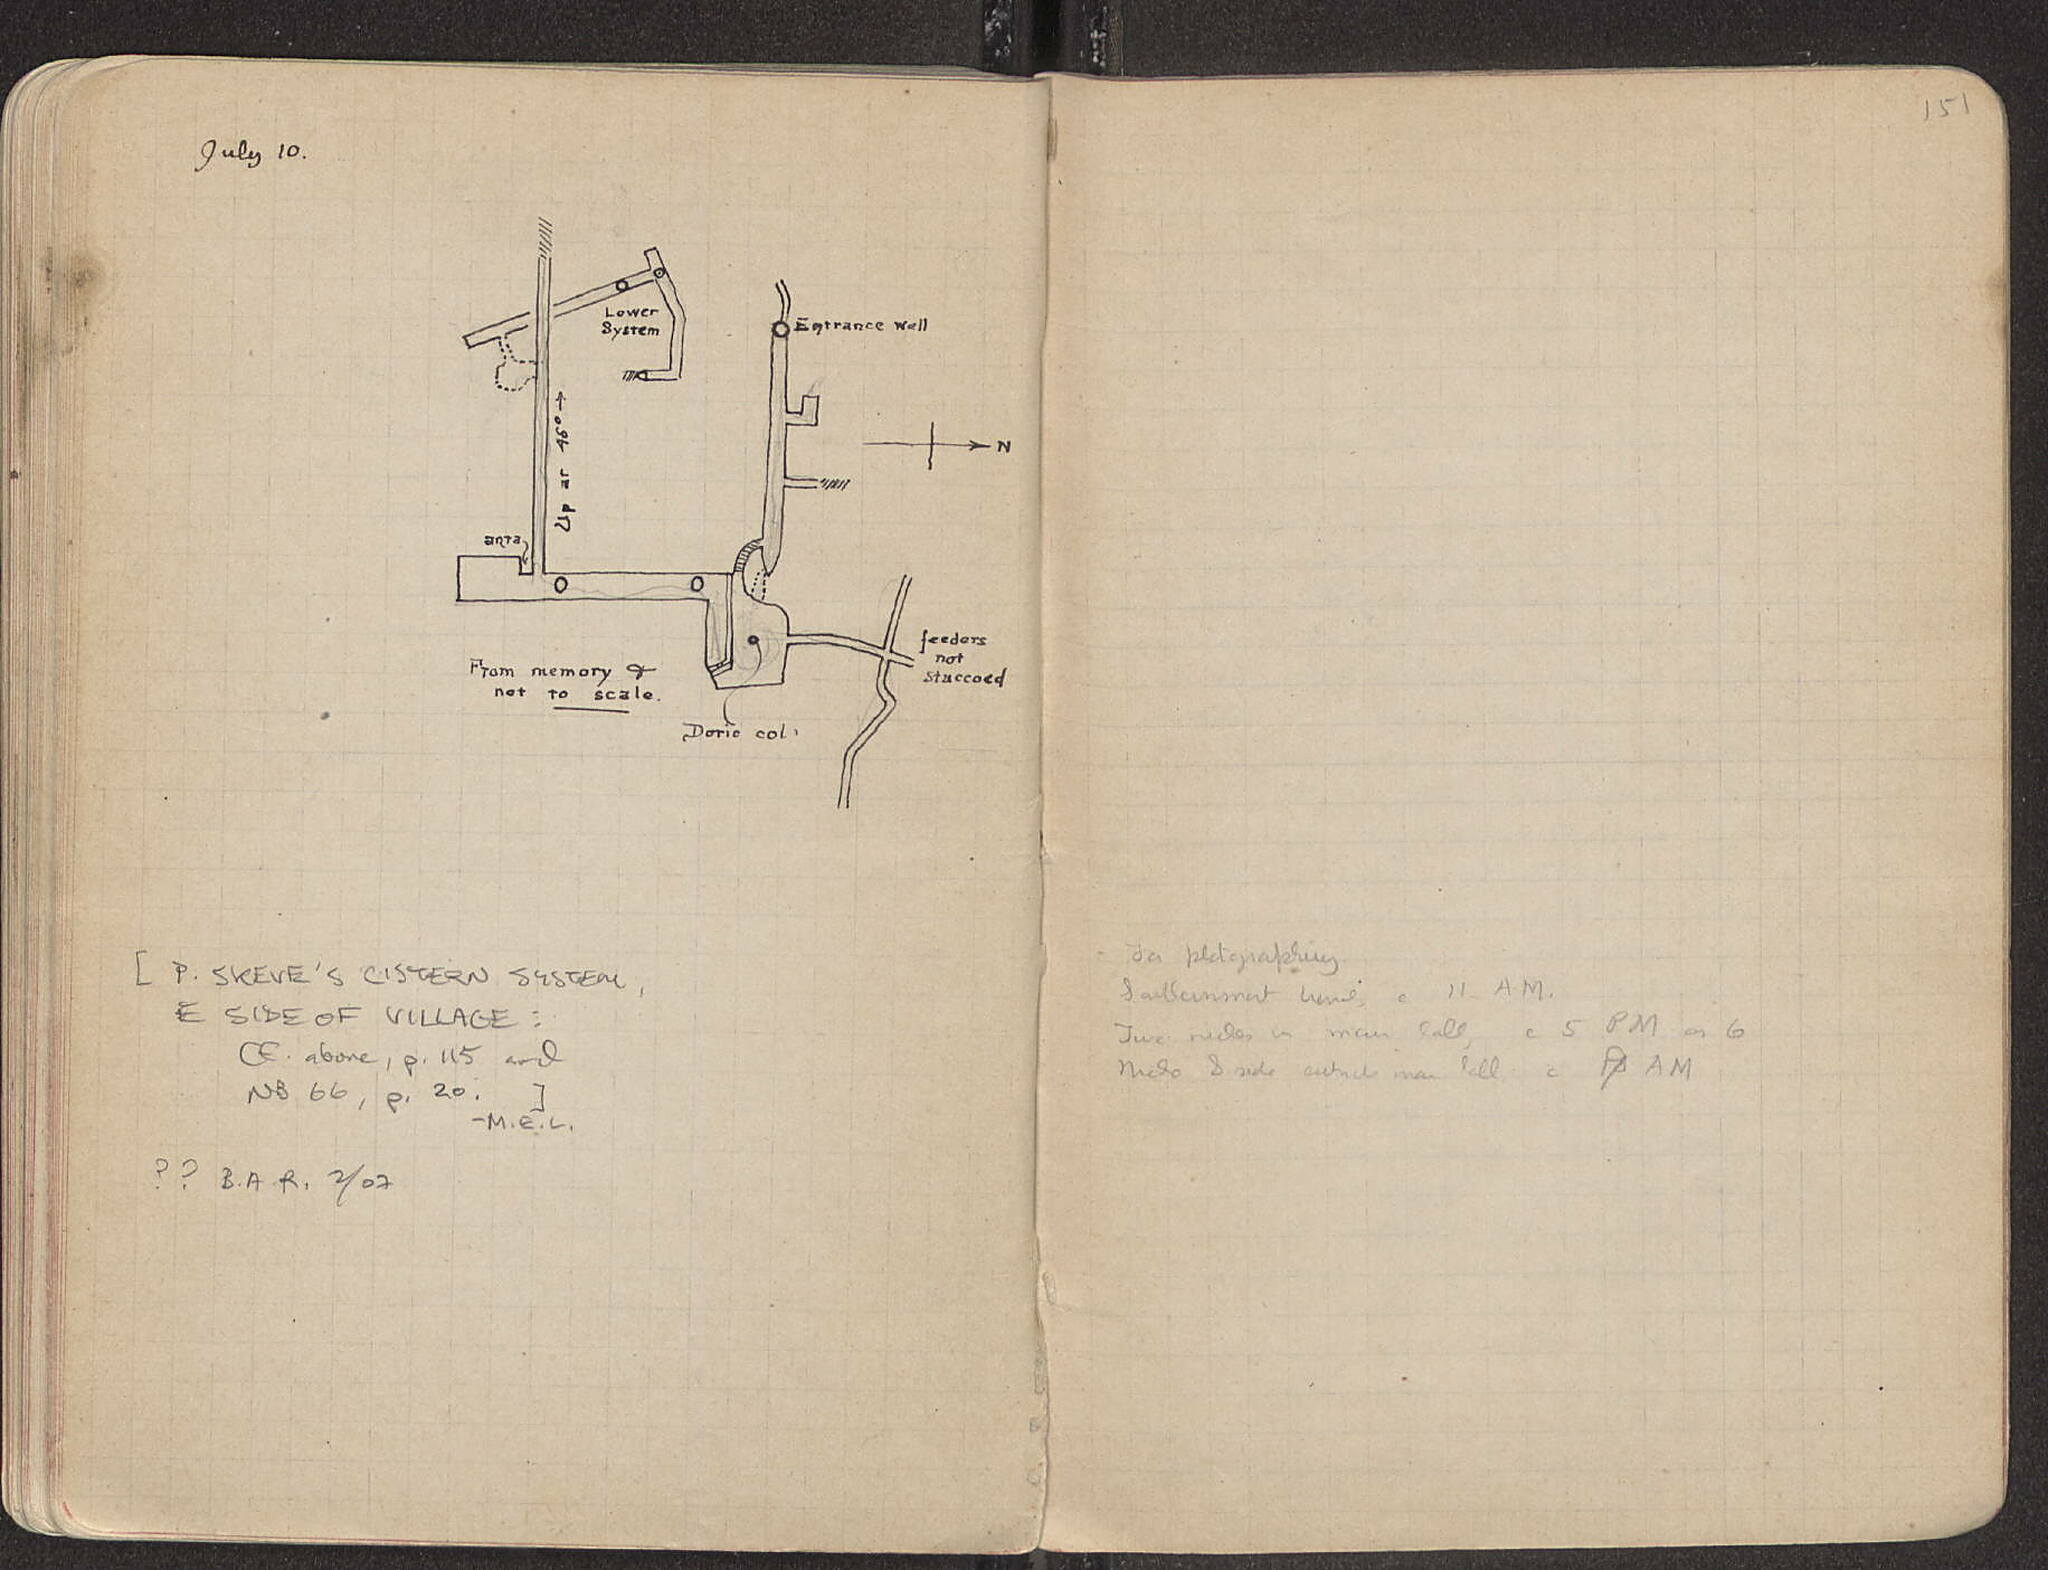 July 10.
Lower
System
Entrance well
Up at 46° →
N
anta
From memory &
not to scale.
Doric col.
feeders
not
stuccoed
[ P. SKEVE'S CISTERN SYSTEM,
E SIDE OF VILLAGE:
CF. above, p. 115 and
NB 66, p. 20. ]
-M.E.L.
?? B.A.R. 2/07
151
For photographing
c 11 A.M.
in main hall, c 5 PM or 6
side outside main hall c AM